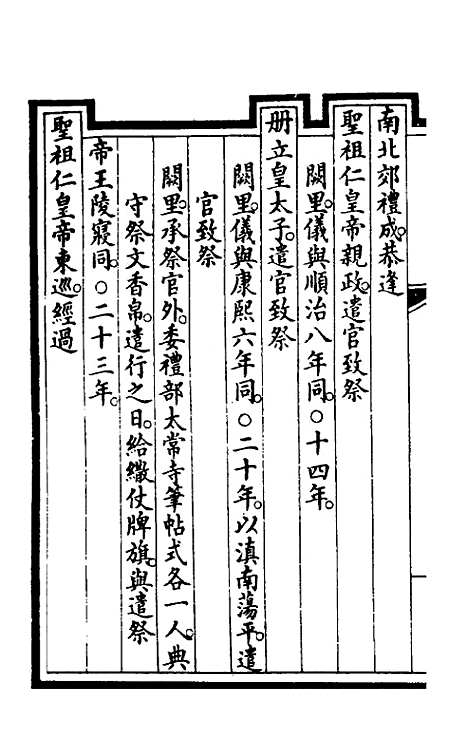 南北郊禮成。恭逢
聖祖仁皇帝親政。遣官致祭
闕里。儀與順治八年同。○十四年。
册立皇太子。遣官致祭
闕里。儀與康熙六年同。○二十年。以滇南蕩平。遣
官致祭
闕里。承祭官外。委禮部太常寺筆帖式各一人。典
守祭文香帛。遣行之日。給繖仗牌旗。與遣祭
帝王陵寢同。○二十三年。
聖祖仁皇帝東巡。經過